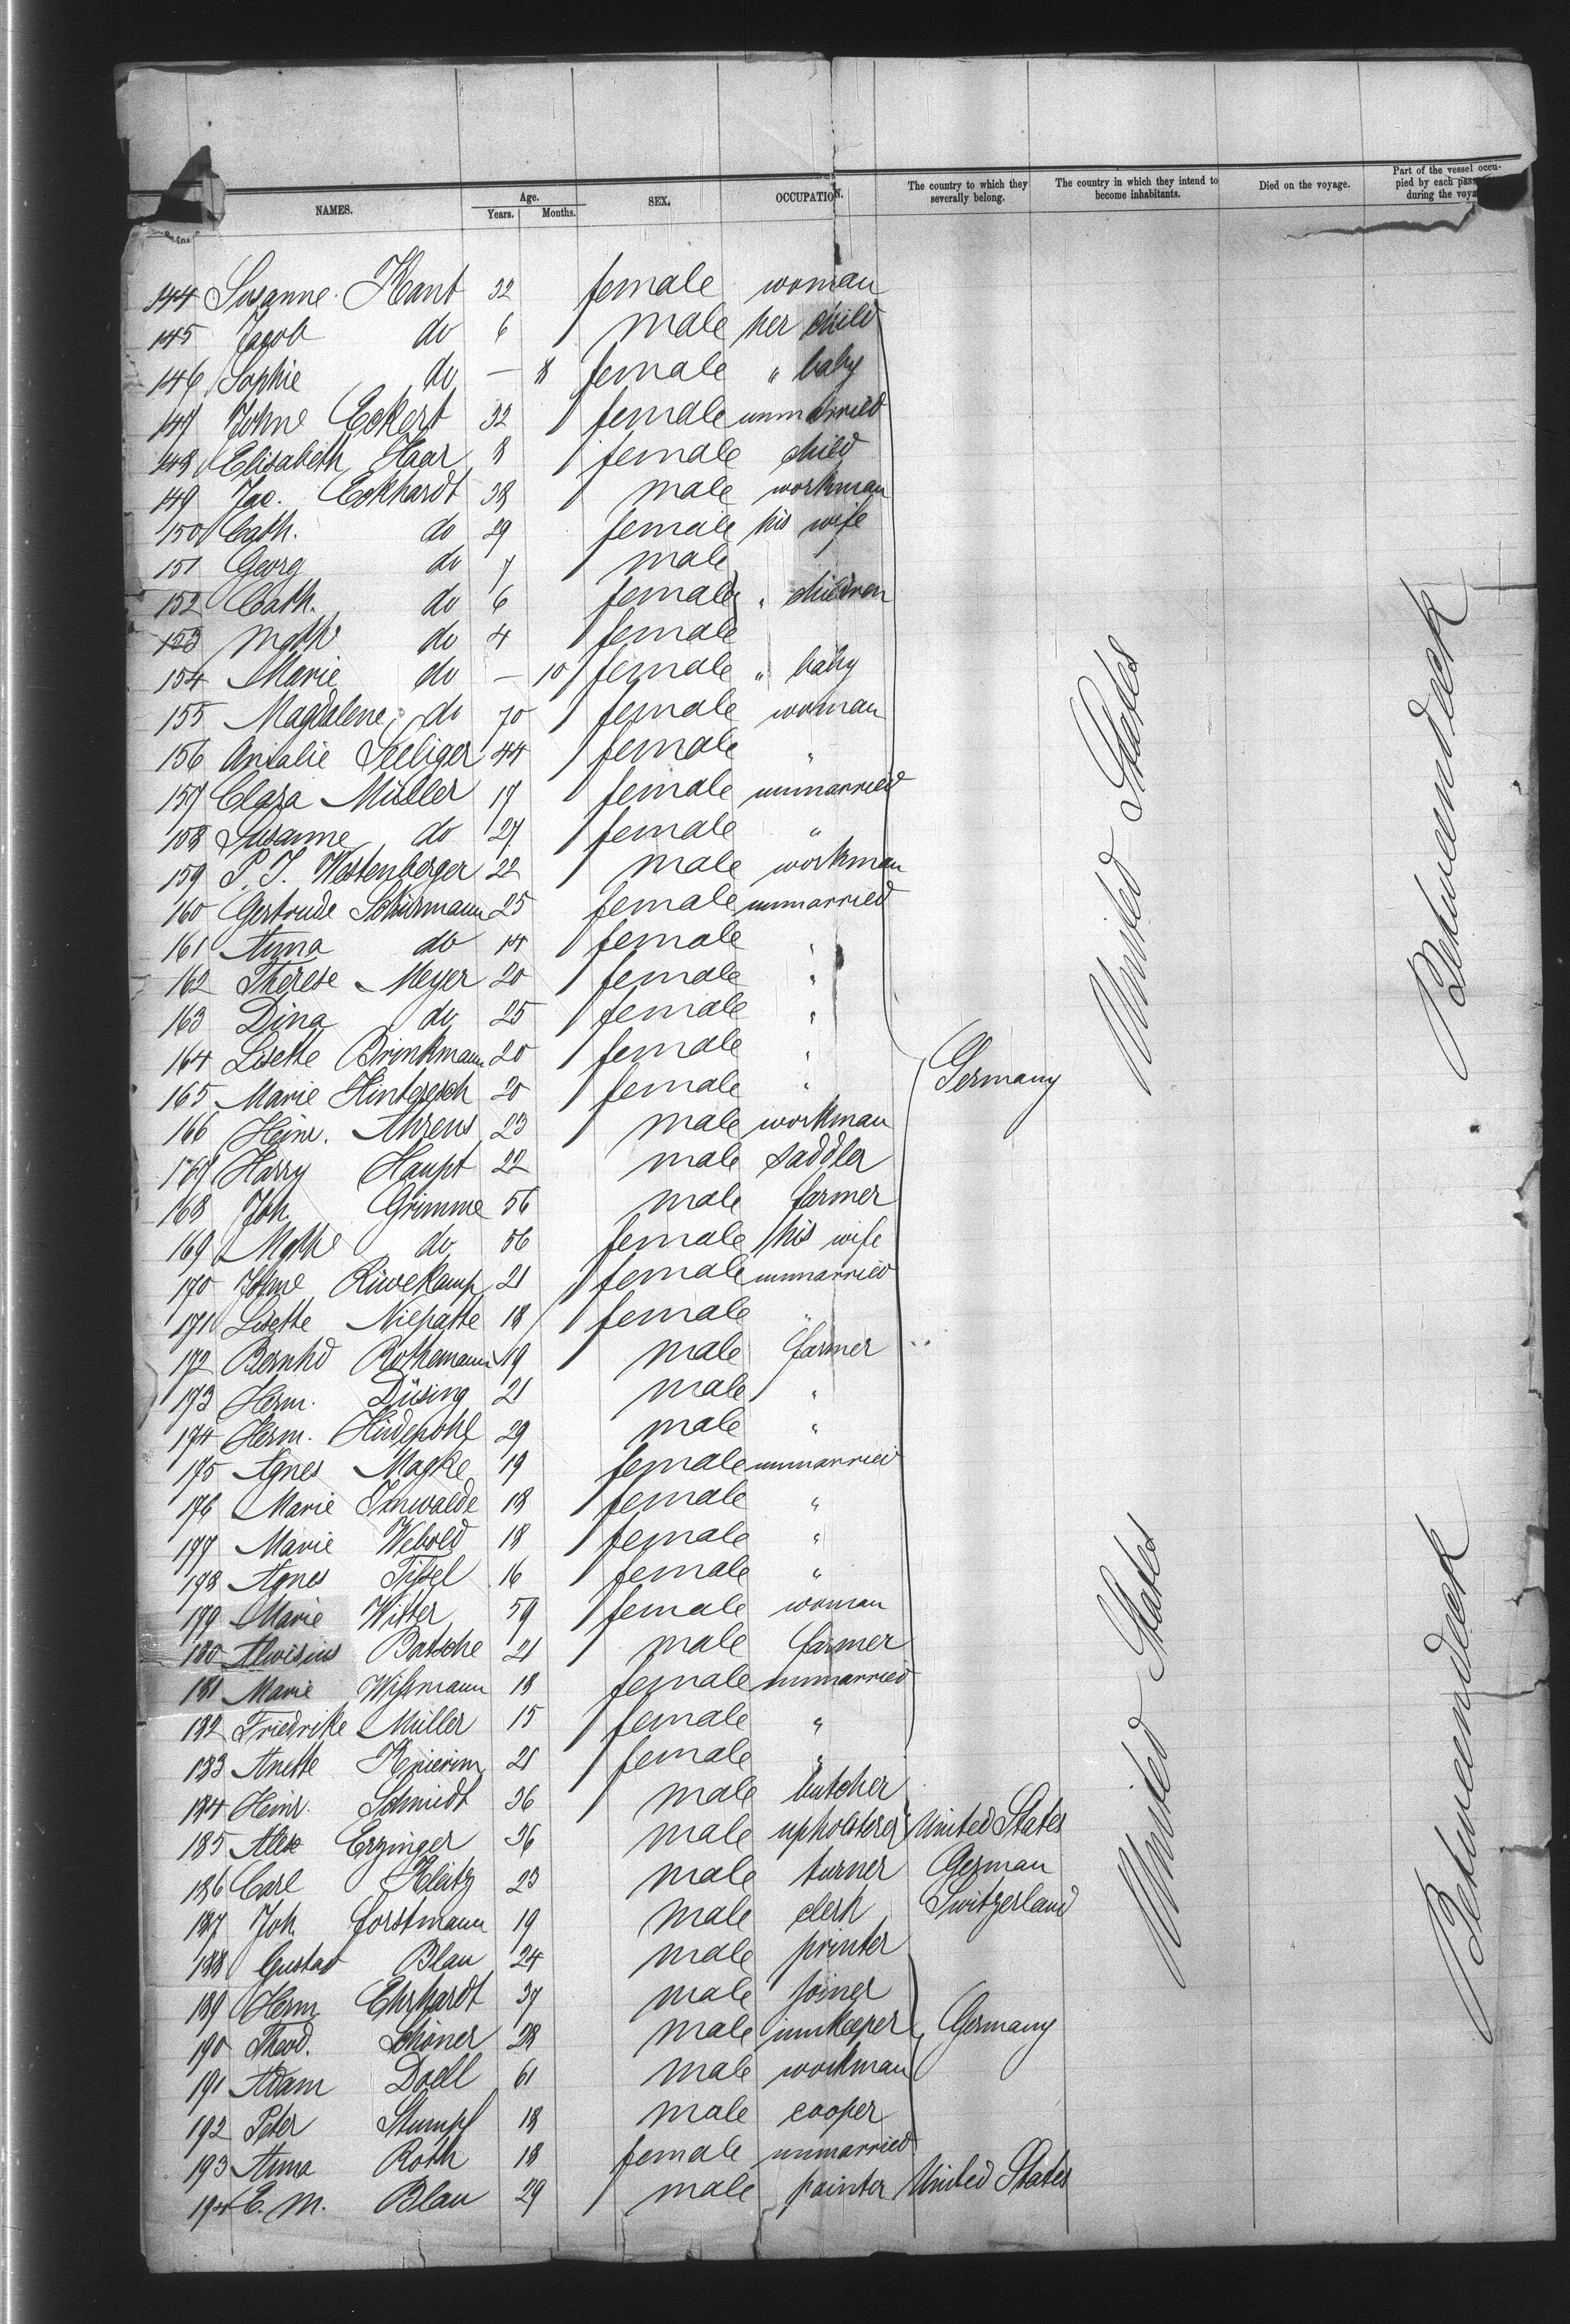 NAMES. Age. Years. Months. SEX. OCCUPATION. The country to which they severally belong. The country in which they intend to become inhabitants. Died on the voyage. Part of the vessel occupied by each during the
144 Susanne Kant 32 female woman
145 Jacob do 6 male her child
146 Sophie do — 8 female " baby
147 Johne Eckert 32 female unmarried
148 Elisabeth Haar 8 female child
149 Jac. Eckhardt 38 male workman
150 Cath. do 29 female his wife
151 Georg do 7 male
152 Cath. do 6 female " children
153 Mathe do 4 female
154 Marie do — 10 female " baby
155 Magdalene do 70 female woman
156 Amalie Seeliger 44 female "
157 Clara Müller 17 female unmarried
158 Susanne do 27 female "
159 P. J. Westenberger 22 male workman
160 Gertrude Schürmann 25 female unmarried
161 Anna do 14 female "
162 Therese Meyer 20 female "
163 Dina do 25 female "
164 Lisette Brinkmann 20 female "
Germany
United States
Betweendeck
165 Marie 20 female "
166 Heinr. Ahrens 23 male workman
167 Harry Haupt 22 male saddler
168 Joh. Grimme 56 male farmer
169 Mathe do 56 female his wife
170 Johne Rüwekamp 21 female unmarried
171 Lisette Niepatte 18 female "
172 Bernhd Rothemann 19 male farmer
173 Herm. Düsing 21 male "
174 Herm. Hüdepohl 29 male "
175 Agnes Magke 19 female unmarried
176 Marie Imwalde 18 female "
177 Marie Webold 18 female "
178 Agnes Tissel 16 female "
179 Marie Witter 59 female woman
180 Aloisius Batsche 21 male farmer
181 Marie Wißmann 18 female unmarried
182 Friedrike Müller 15 female "
183 Anette Knierim 21 female "
184 Heinr. Schmidt 36 male butcher
185 Alex Erzinger 36 male upholsterer United States
186 Carl Klatz 23 male turner German
187 Joh. Forstmann 19 male clerk Switzerland
United States
Betweendeck
188 Gustav Blau 24 male printer
189 Herm. Ehrhardt 37 male joiner
190 Theod. Schöner 28 male innkeeper Germany
191 Adam Doell 61 male workman
192 Peter Stumpf 18 male cooper
193 Anna Roth 18 female unmarried
194 E. M. Blau 29 male painter United States